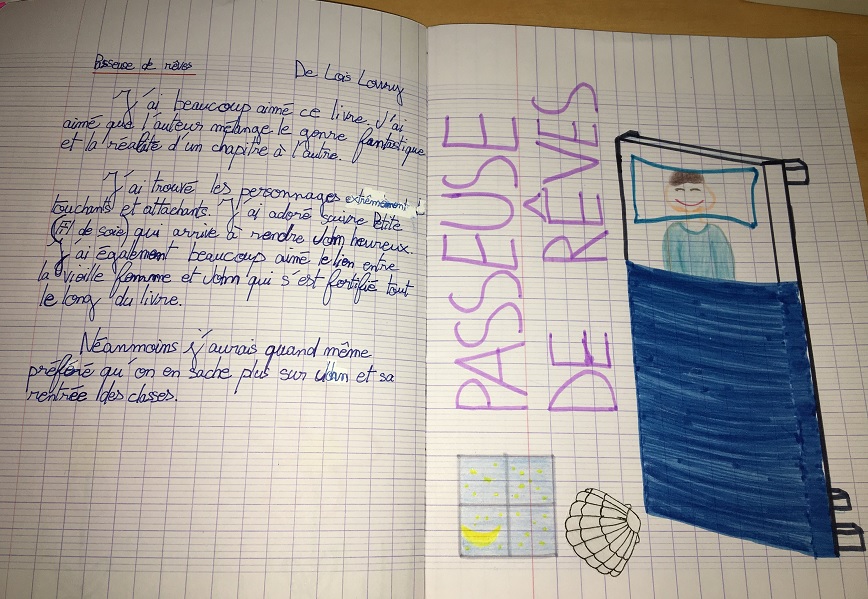 Passeuse de rêves
De Loïs Lowry
J'ai beaucoup aimé ce livre. J'ai
aimé que l'auteur mélange le genre fantastique
et la réalité d'un chapitre à l'autre.
J'ai trouvé les personnages extrêmement
touchants et attachants. J'ai adoré suivre Petite
(Fil de soie) qui arrive à rendre John heureux.
J'ai également beaucoup aimé le lien entre
la vieille femme et John qui s'est fortifié tout
le long du livre.
Néanmoins j'aurais quand même
préféré qu'on en sache plus sur John et sa
rentrée des classes.
PASSEUSE
DE RÊVES